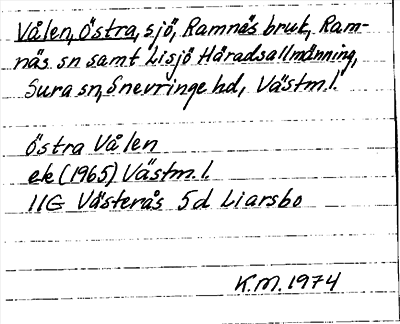 Vålen, Östra, sjö, Ramnäs bruk, Ram-
näs sn samt Lisjö Häradsallmänning,
Sura sn, Snevringe hd, Västm.l.
Östra Vålen
ek (1965) Västm.l.
11G Västerås 5d Liarsbo
K.M. 1974